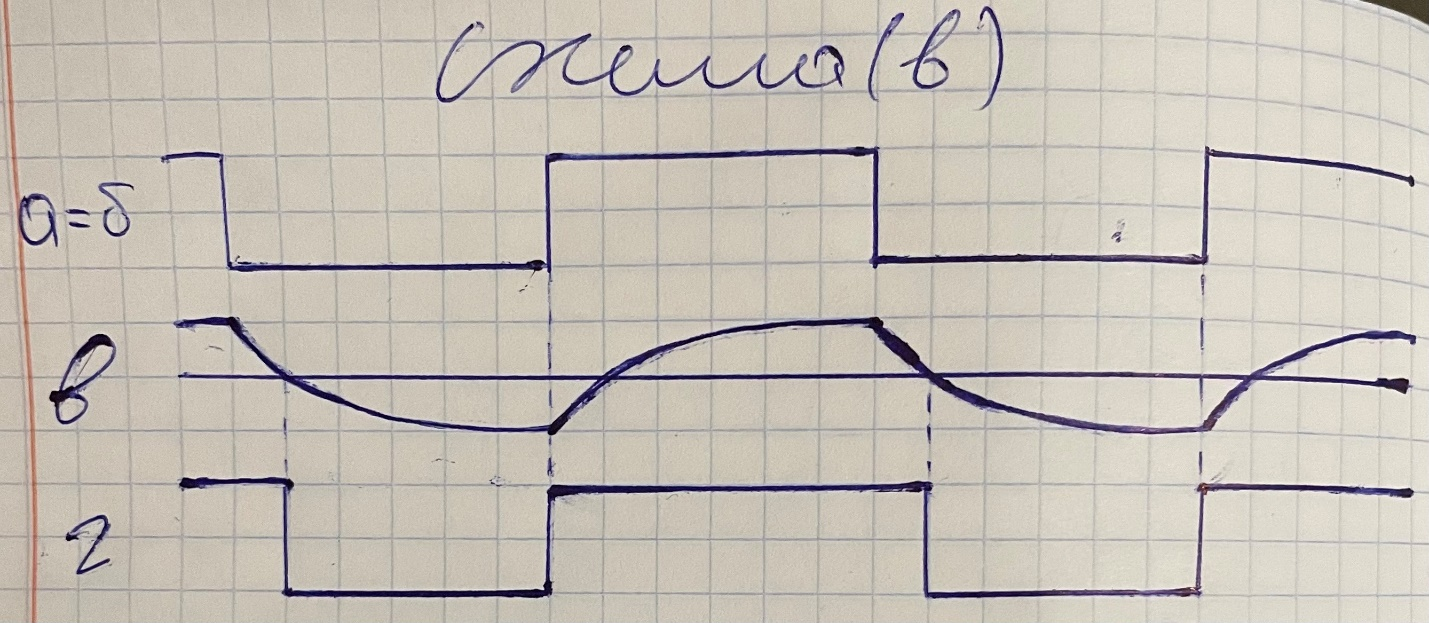 Схема(в)
а=б
в
г